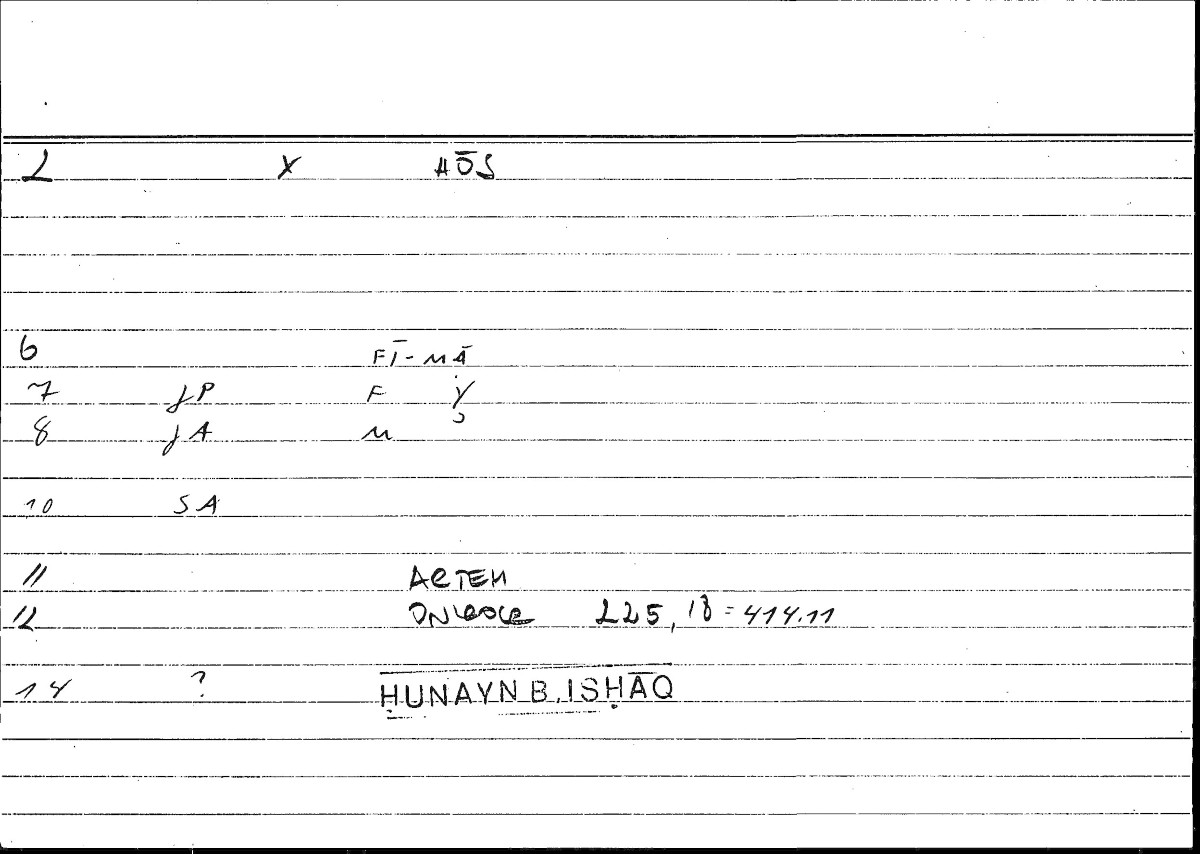 2 X HŌS
6 FĪ-MĀ
7 JP F Y
8 JA M
10 SA
11 ARTEM
12 ONIROCR 225,18=414.11
14 ? ḤUNAYN B. ISḤĀQ